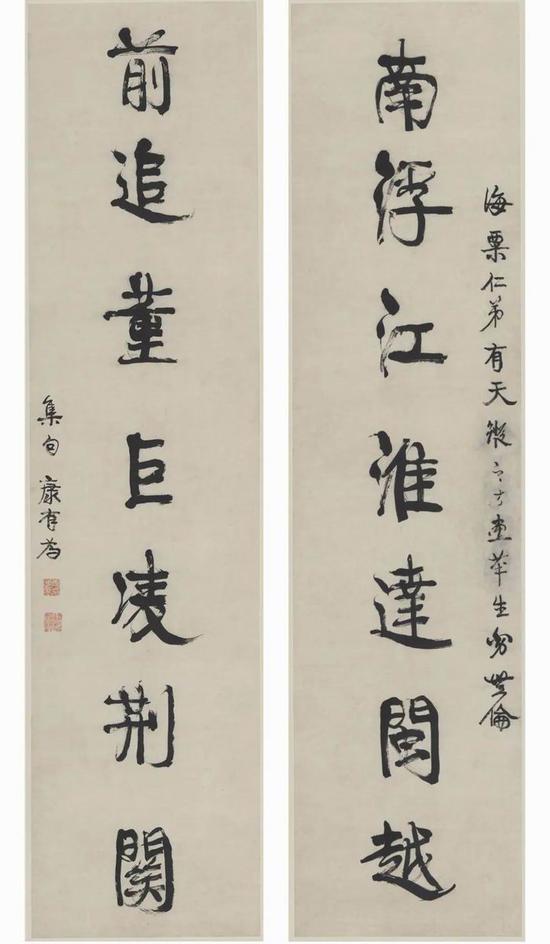 海粟仁弟有天縱之才畫筆生
南浮江淮達閩越
前追董巨凌荊關
集句 康有為